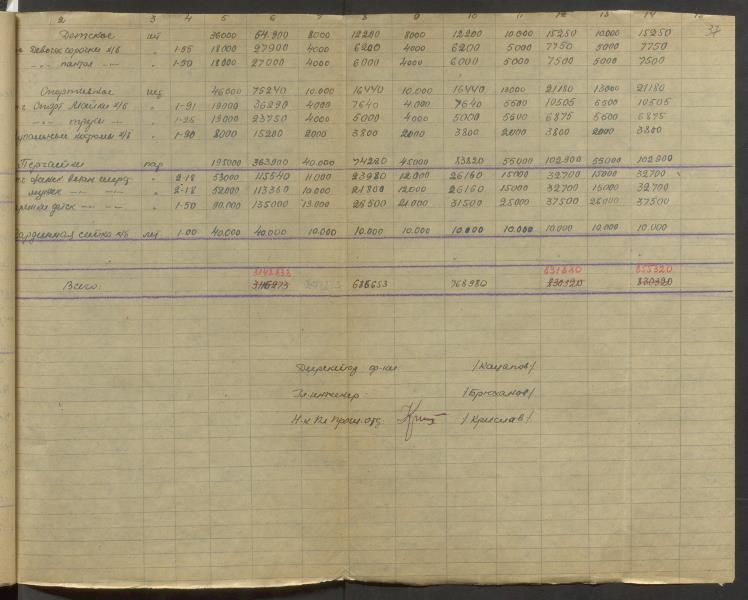 2 3 4 5 6 7 8 9 10 11 12 13 14 15
37
Детское шт 36000 54.900 8000 12200 8000 12200 10.000 15250 10.000 15250
сорочки х/б " 1-55 18000 27900 4000 6200 4000 6200 5000 7750 5000 7750
-"- пантал -"- " 1-50 18000 27000 4000 6000 4000 6000 5000 7500 5000 7500
Спортивное шт 46000 75240 10.000 16440 10.000 16440 13000 21180 13000 21180
Спорт Майки х/б " 1-91 19000 36290 4000 7640 4.000 7640 5500 10505 5500 10505
-"- трусы -"- " 1-25 19000 23750 4000 5000 4000 5000 5500 6875 5500 6875
купальные костюмы х/б " 1-90 8000 15200 2000 3800 2000 3800 2000 3800 2000 3800
Перчатки пар 195000 363900 40.000 74280 45000 83820 55000 102.900 55000 102.900
" 2-18 53000 115540 11000 23980 12.000 26160 15000 32700 15000 32700
мужск -"- -"- " 2-18 52000 113360 10.000 21800 12000 26160 15000 32700 15000 32700
детск -"- -"- " 1-50 90.000 135000 19000 28500 21.000 31500 25000 37500 25000 37500
Гардинная сетка х/б 1-00 40.000 40.000 10.000 10.000 10.000 10.000 10.000 10.000 10.000 10.000
3142833 831820 855320
Всего: 686653 768980 830320 830320
Директор ф-ки /Кацапов/
Гл. инженер /Брюханов/
Н-к Пл Произ. отд. /Крислав/